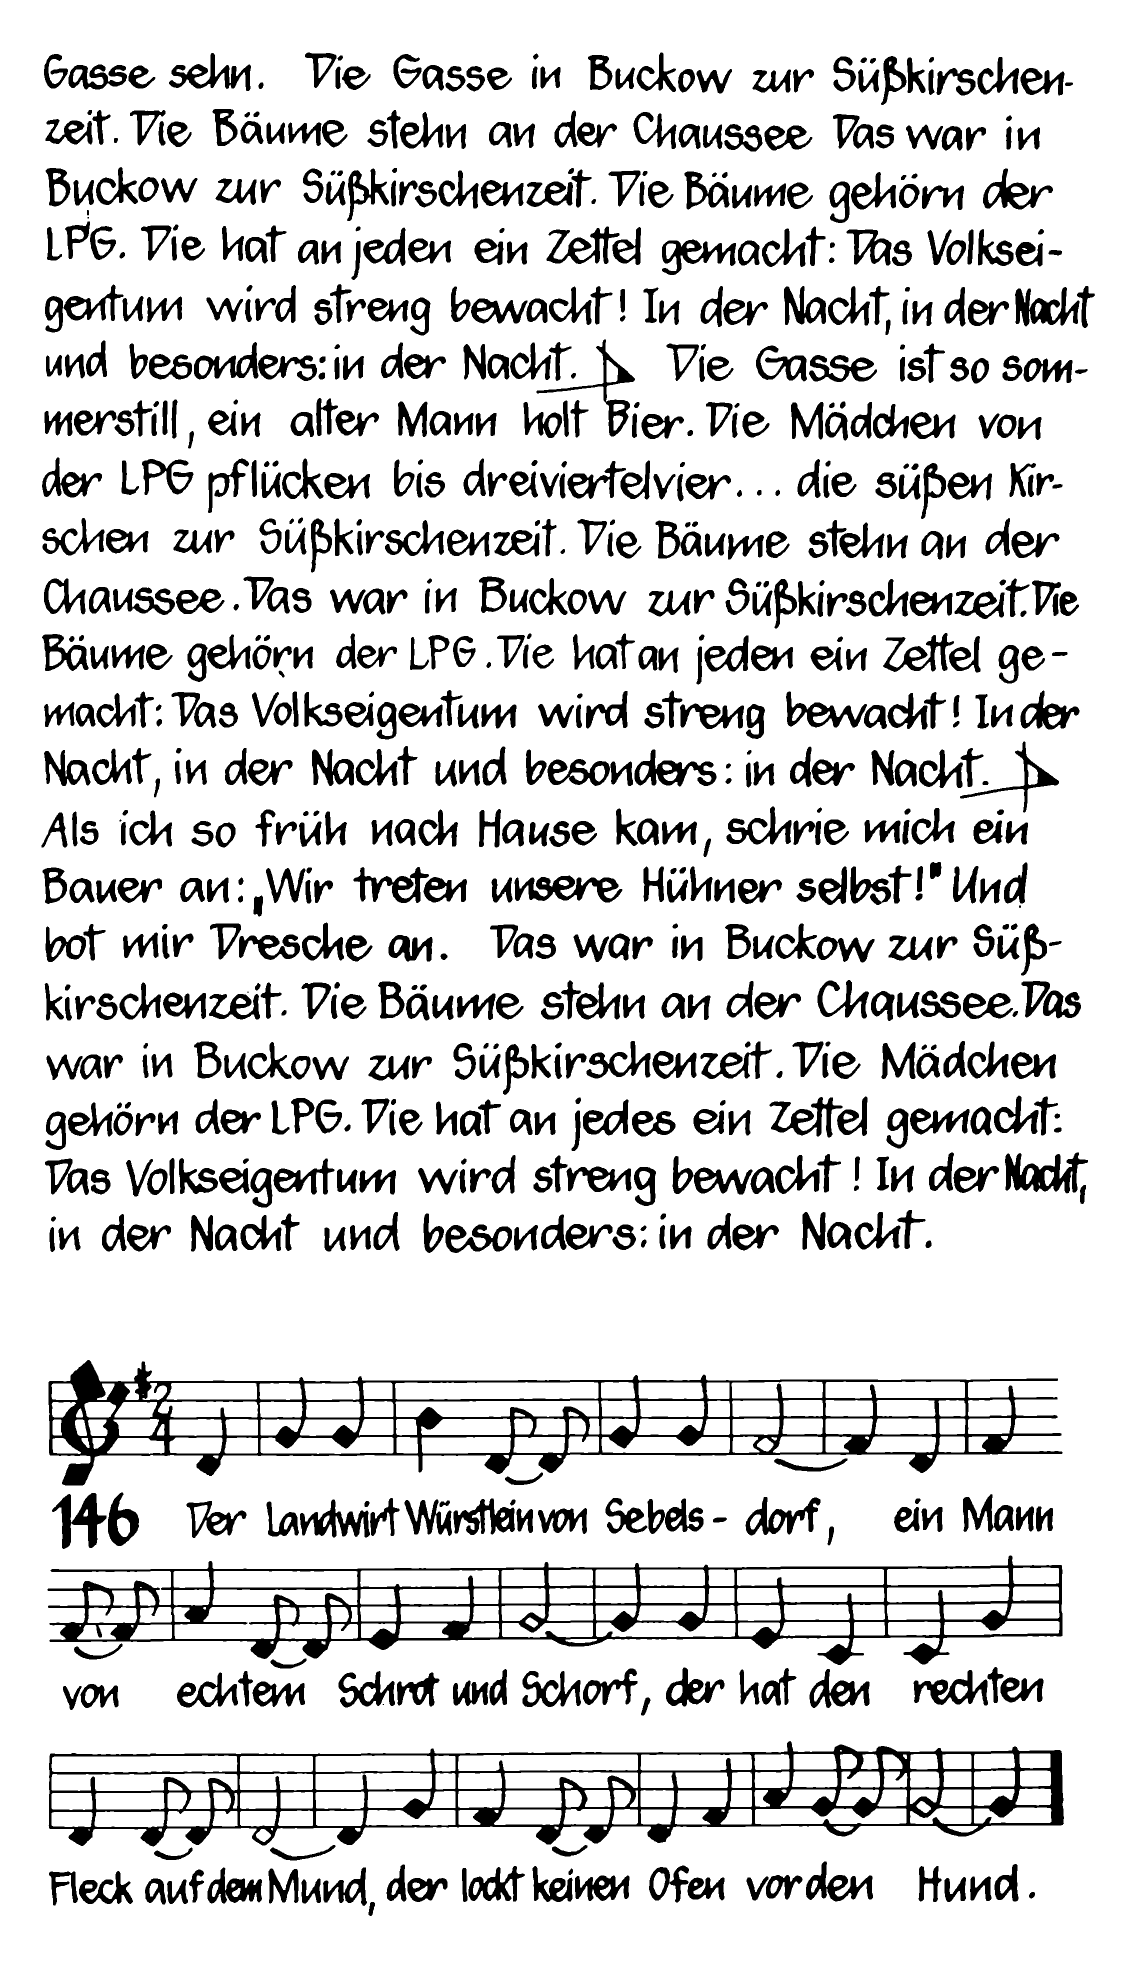 Gasse sehn. Die Gasse in Buckow zur Süßkirschen-
zeit. Die Bäume stehn an der Chaussee Das war in
Buckow zur Süßkirschenzeit. Die Bäume gehörn der
LPG. Die hat an jeden ein Zettel gemacht: Das Volksei-
gentum wird streng bewacht! In der Nacht, in der Nacht
und besonders: in der Nacht. Die Gasse ist so som-
merstill, ein alter Mann holt Bier. Die Mädchen von
der LPG pflücken bis dreiviertelvier... die süßen Kir-
schen zur Süßkirschenzeit. Die Bäume stehn an der
Chaussee. Das war in Buckow zur Süßkirschenzeit. Die
Bäume gehörn der LPG. Die hat an jeden ein Zettel ge-
macht: Das Volkseigentum wird streng bewacht! In der
Nacht, in der Nacht und besonders: in der Nacht.
Als ich so früh nach Hause kam, schrie mich ein
Bauer an: „Wir treten unsere Hühner selbst!" Und
bot mir Dresche an. Das war in Buckow zur Süß-
kirschenzeit. Die Bäume stehn an der Chaussee. Das
war in Buckow zur Süßkirschenzeit. Die Mädchen
gehörn der LPG. Die hat an jedes ein Zettel gemacht:
Das Volkseigentum wird streng bewacht! In der Nacht,
in der Nacht und besonders: in der Nacht.
2
4
146 Der Landwirt Würstlein von Sebels- dorf, ein Mann
von echtem Schrot und Schorf, der hat den rechten
Fleck auf dem Mund, der lockt keinen Ofen vor den Hund.